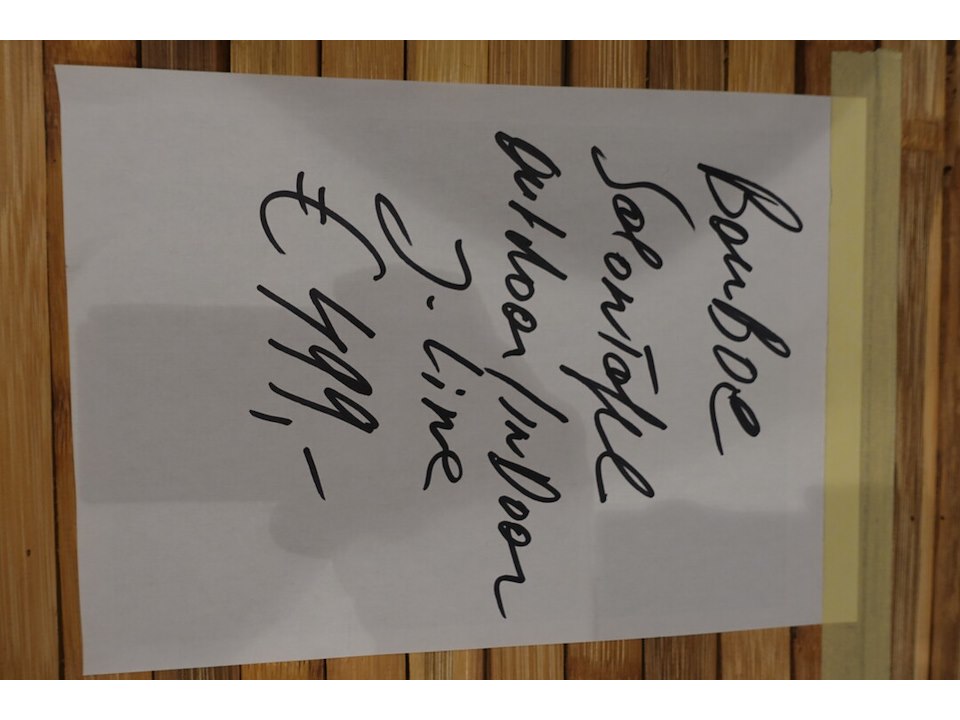 BamBoe
Salontafel
outdoor/InDoor
J. Line
€ 499,-